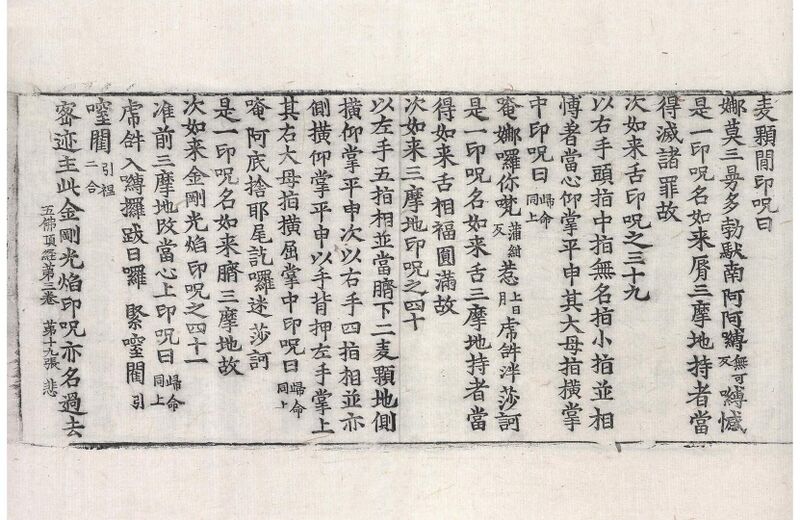 麦顆間印呪曰
娜莫三曼多勃馱南阿阿縛無可反嚩憾
是一印呪名如来脣三摩地持者當
得滅諸罪故
次如来舌印呪之三十九
以右手頭指中指無名指小指並相
愽著當心仰掌平申其大母指橫掌
中印呪曰歸命同上
唵娜囉你㘕蒲紺反惹上曰月虎𤙖泮莎訶
是一印呪名如来舌三摩地持者當
得如来舌相福圓滿故
次如来三摩地印呪之四十
以左手五指相並當臍下二麦顆地側
橫仰掌平申次以右手四指相並亦
側橫仰掌平申以手背押左手掌上
其右大母指橫屈掌中印呪曰歸命同上
唵阿底捨耶尾訖囉迷莎訶
是一印呪名如来臍三摩地故
次如来金剛光焰印呪之四十一
准前三摩地改當心上印呪曰歸命同上
虎𤙖入嚩攞跋日囉 緊嚂閵引
嚂閵引祖二合
密迹主此金剛光焰印呪亦名過去
五佛頂經第三卷 第十九張 悲